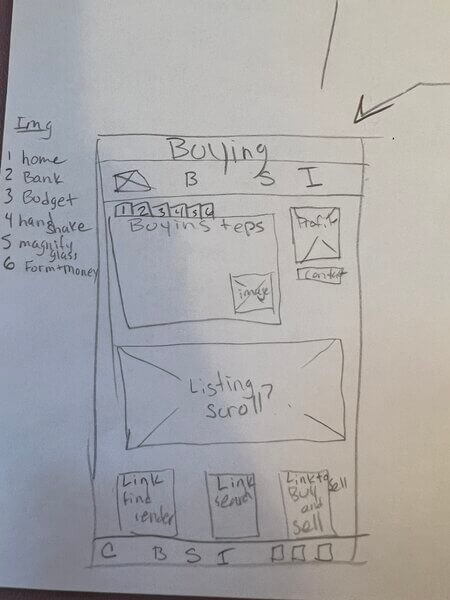 Img
1 home
2 Bank
3 Budget
4 hand shake
5 magnify glass
6 Form+money
Buying
B S I
1 2 3 4 5 6
Buying steps
image
Profile
Contact
Listing
scroll?
Link
find
lender
Link
search
Link to
Buy
and
sell
sell
C B S I